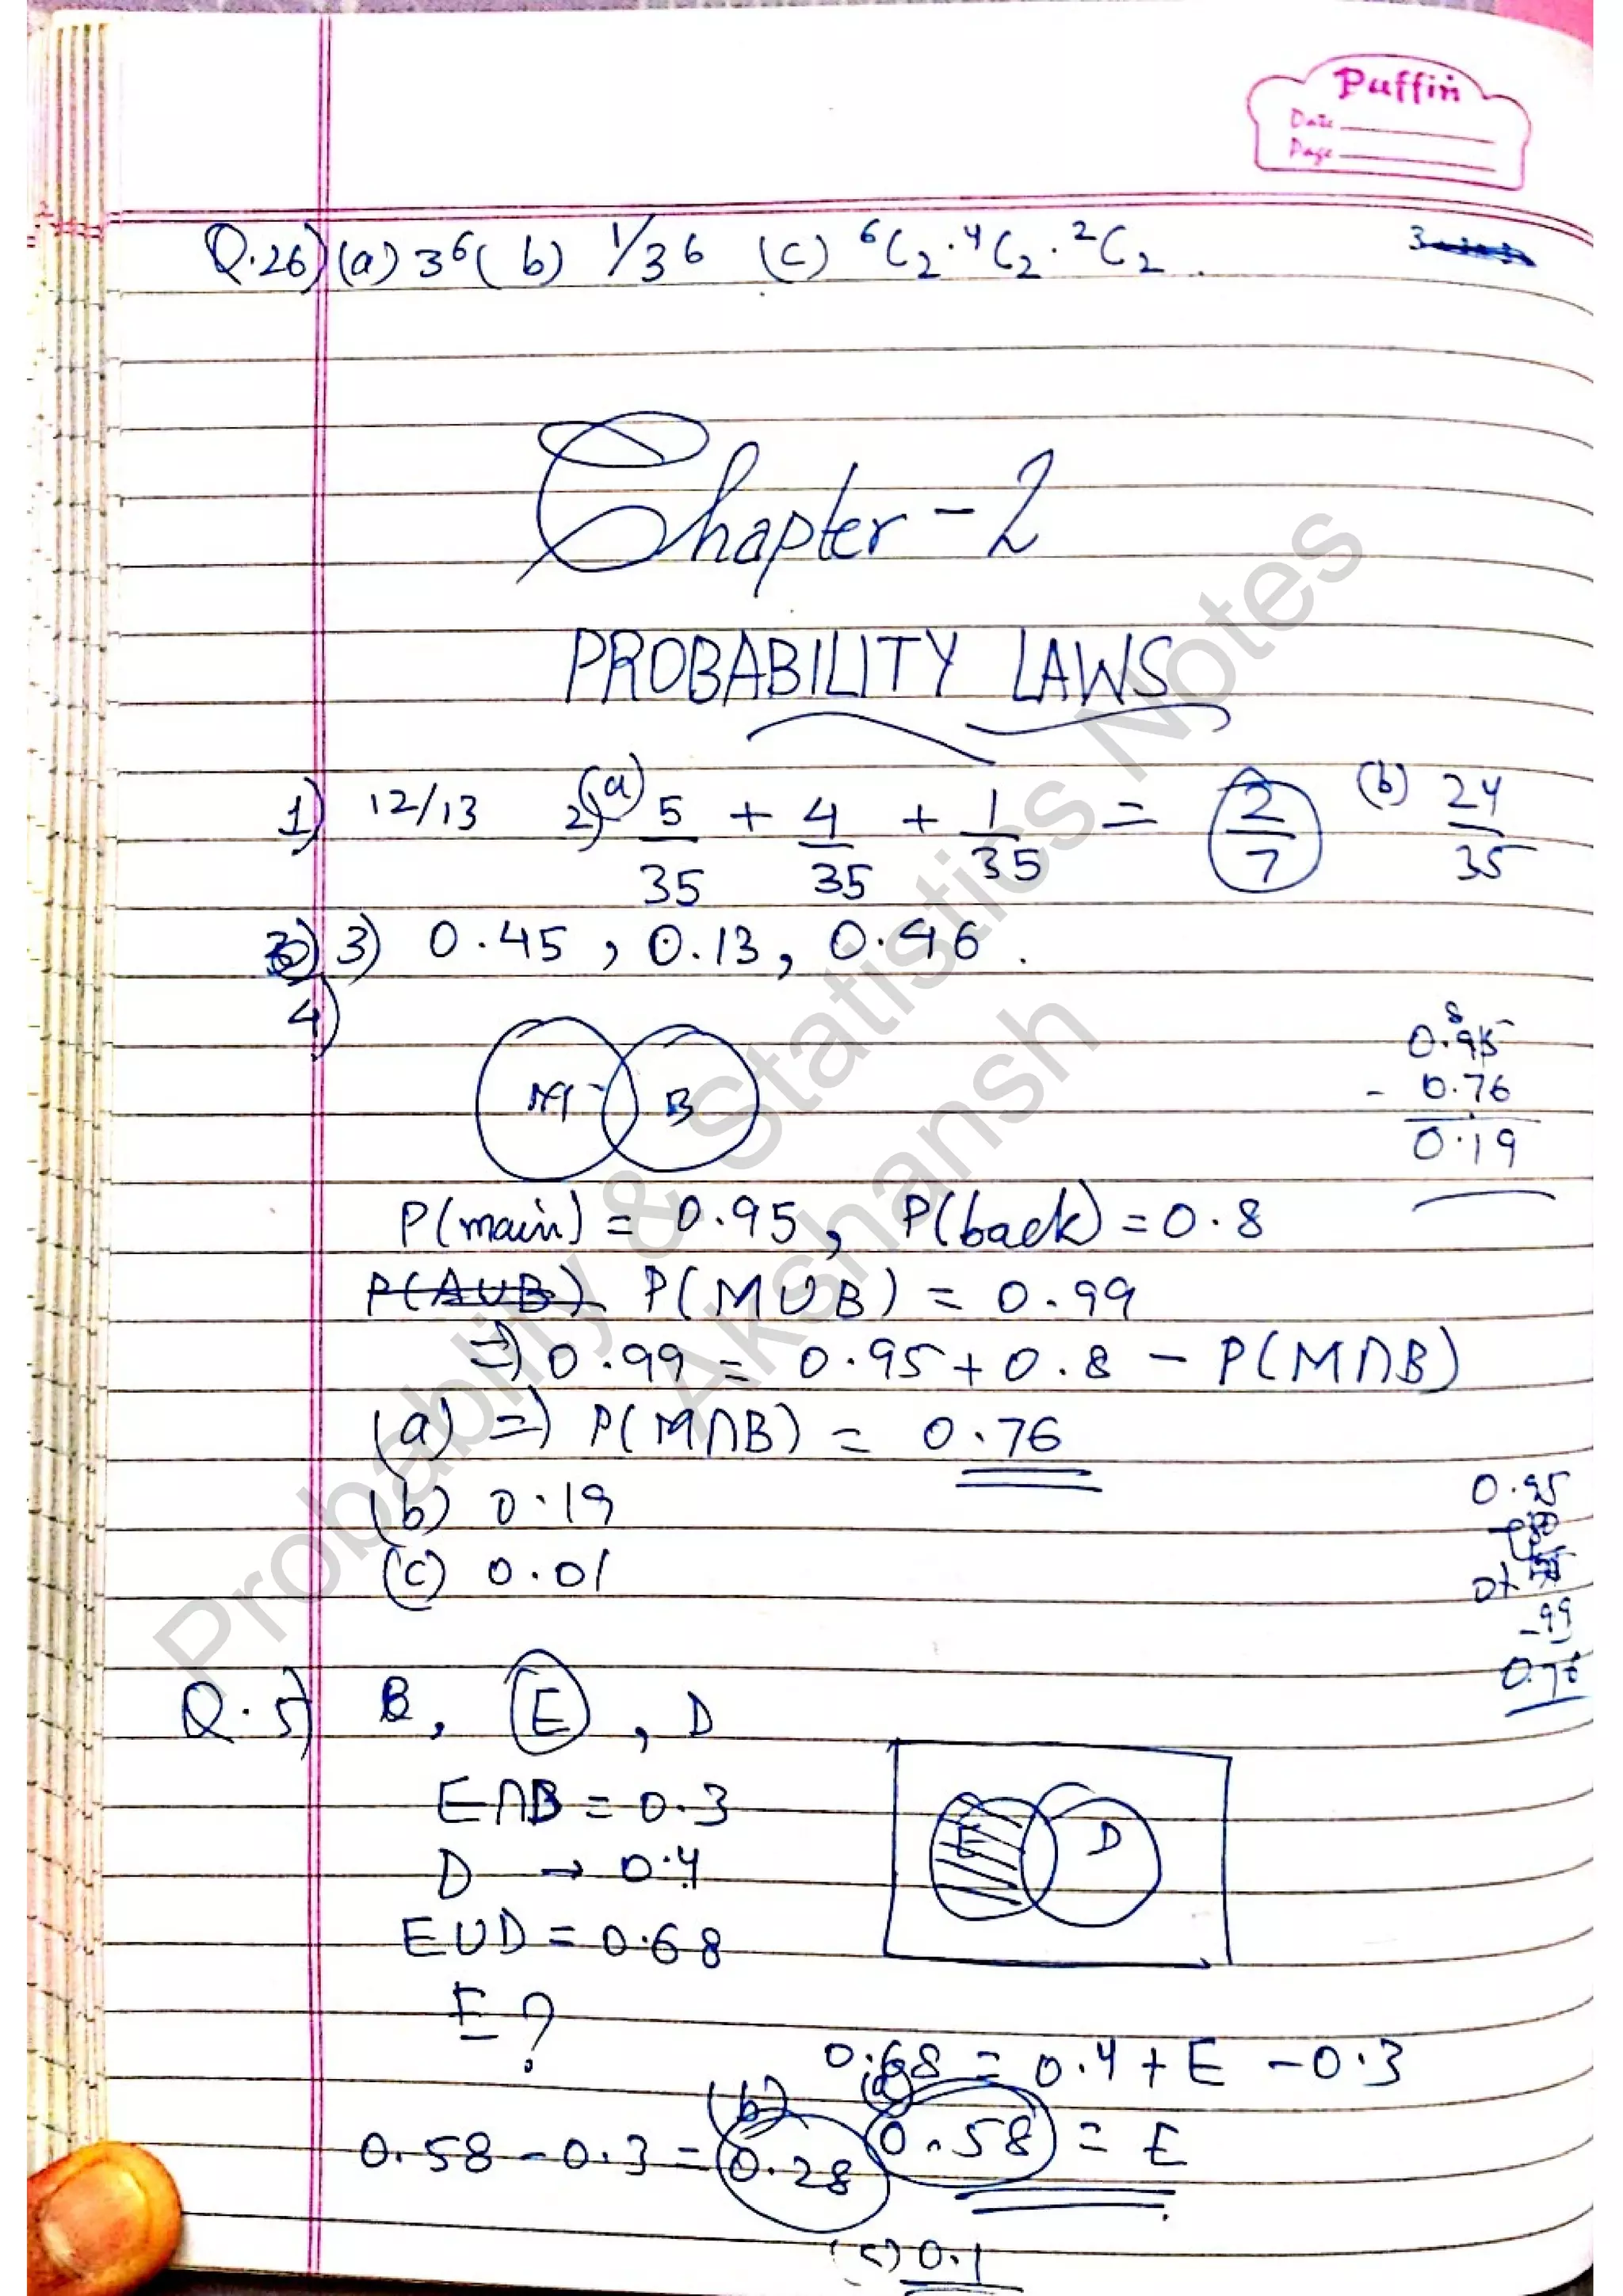 Puffin
Date
Page
Q.26) (a) 3⁶ (b) 1/36 (c) ⁶C₂·⁴C₂·²C₂.
Chapter-2
PROBABILITY LAWS
1) 12/13 2) (a) 5/35 + 4/35 + 1/35 = 2/7 (b) 24/35
3) 0.45, 0.13, 0.96.
4)
M B
0.95
- 0.76
0.19
P(main) = 0.95, P(back) = 0.8
P(AUB) P(MUB) = 0.99
⇒ 0.99 = 0.95 + 0.8 - P(M∩B)
(a) ⇒ P(M∩B) = 0.76
(b) 0.19
(c) 0.01
0.95
-99
0.76
Q.5) B, E, D
E∩B = 0.3
D → 0.4
EUD = 0.68
E?
E D
0.68 = 0.4 + E - 0.3
(a) 0.58 = E
0.58 - 0.3 = (b) 0.28
(c) 0.1
Probability & Statistics Notes
Akshansh